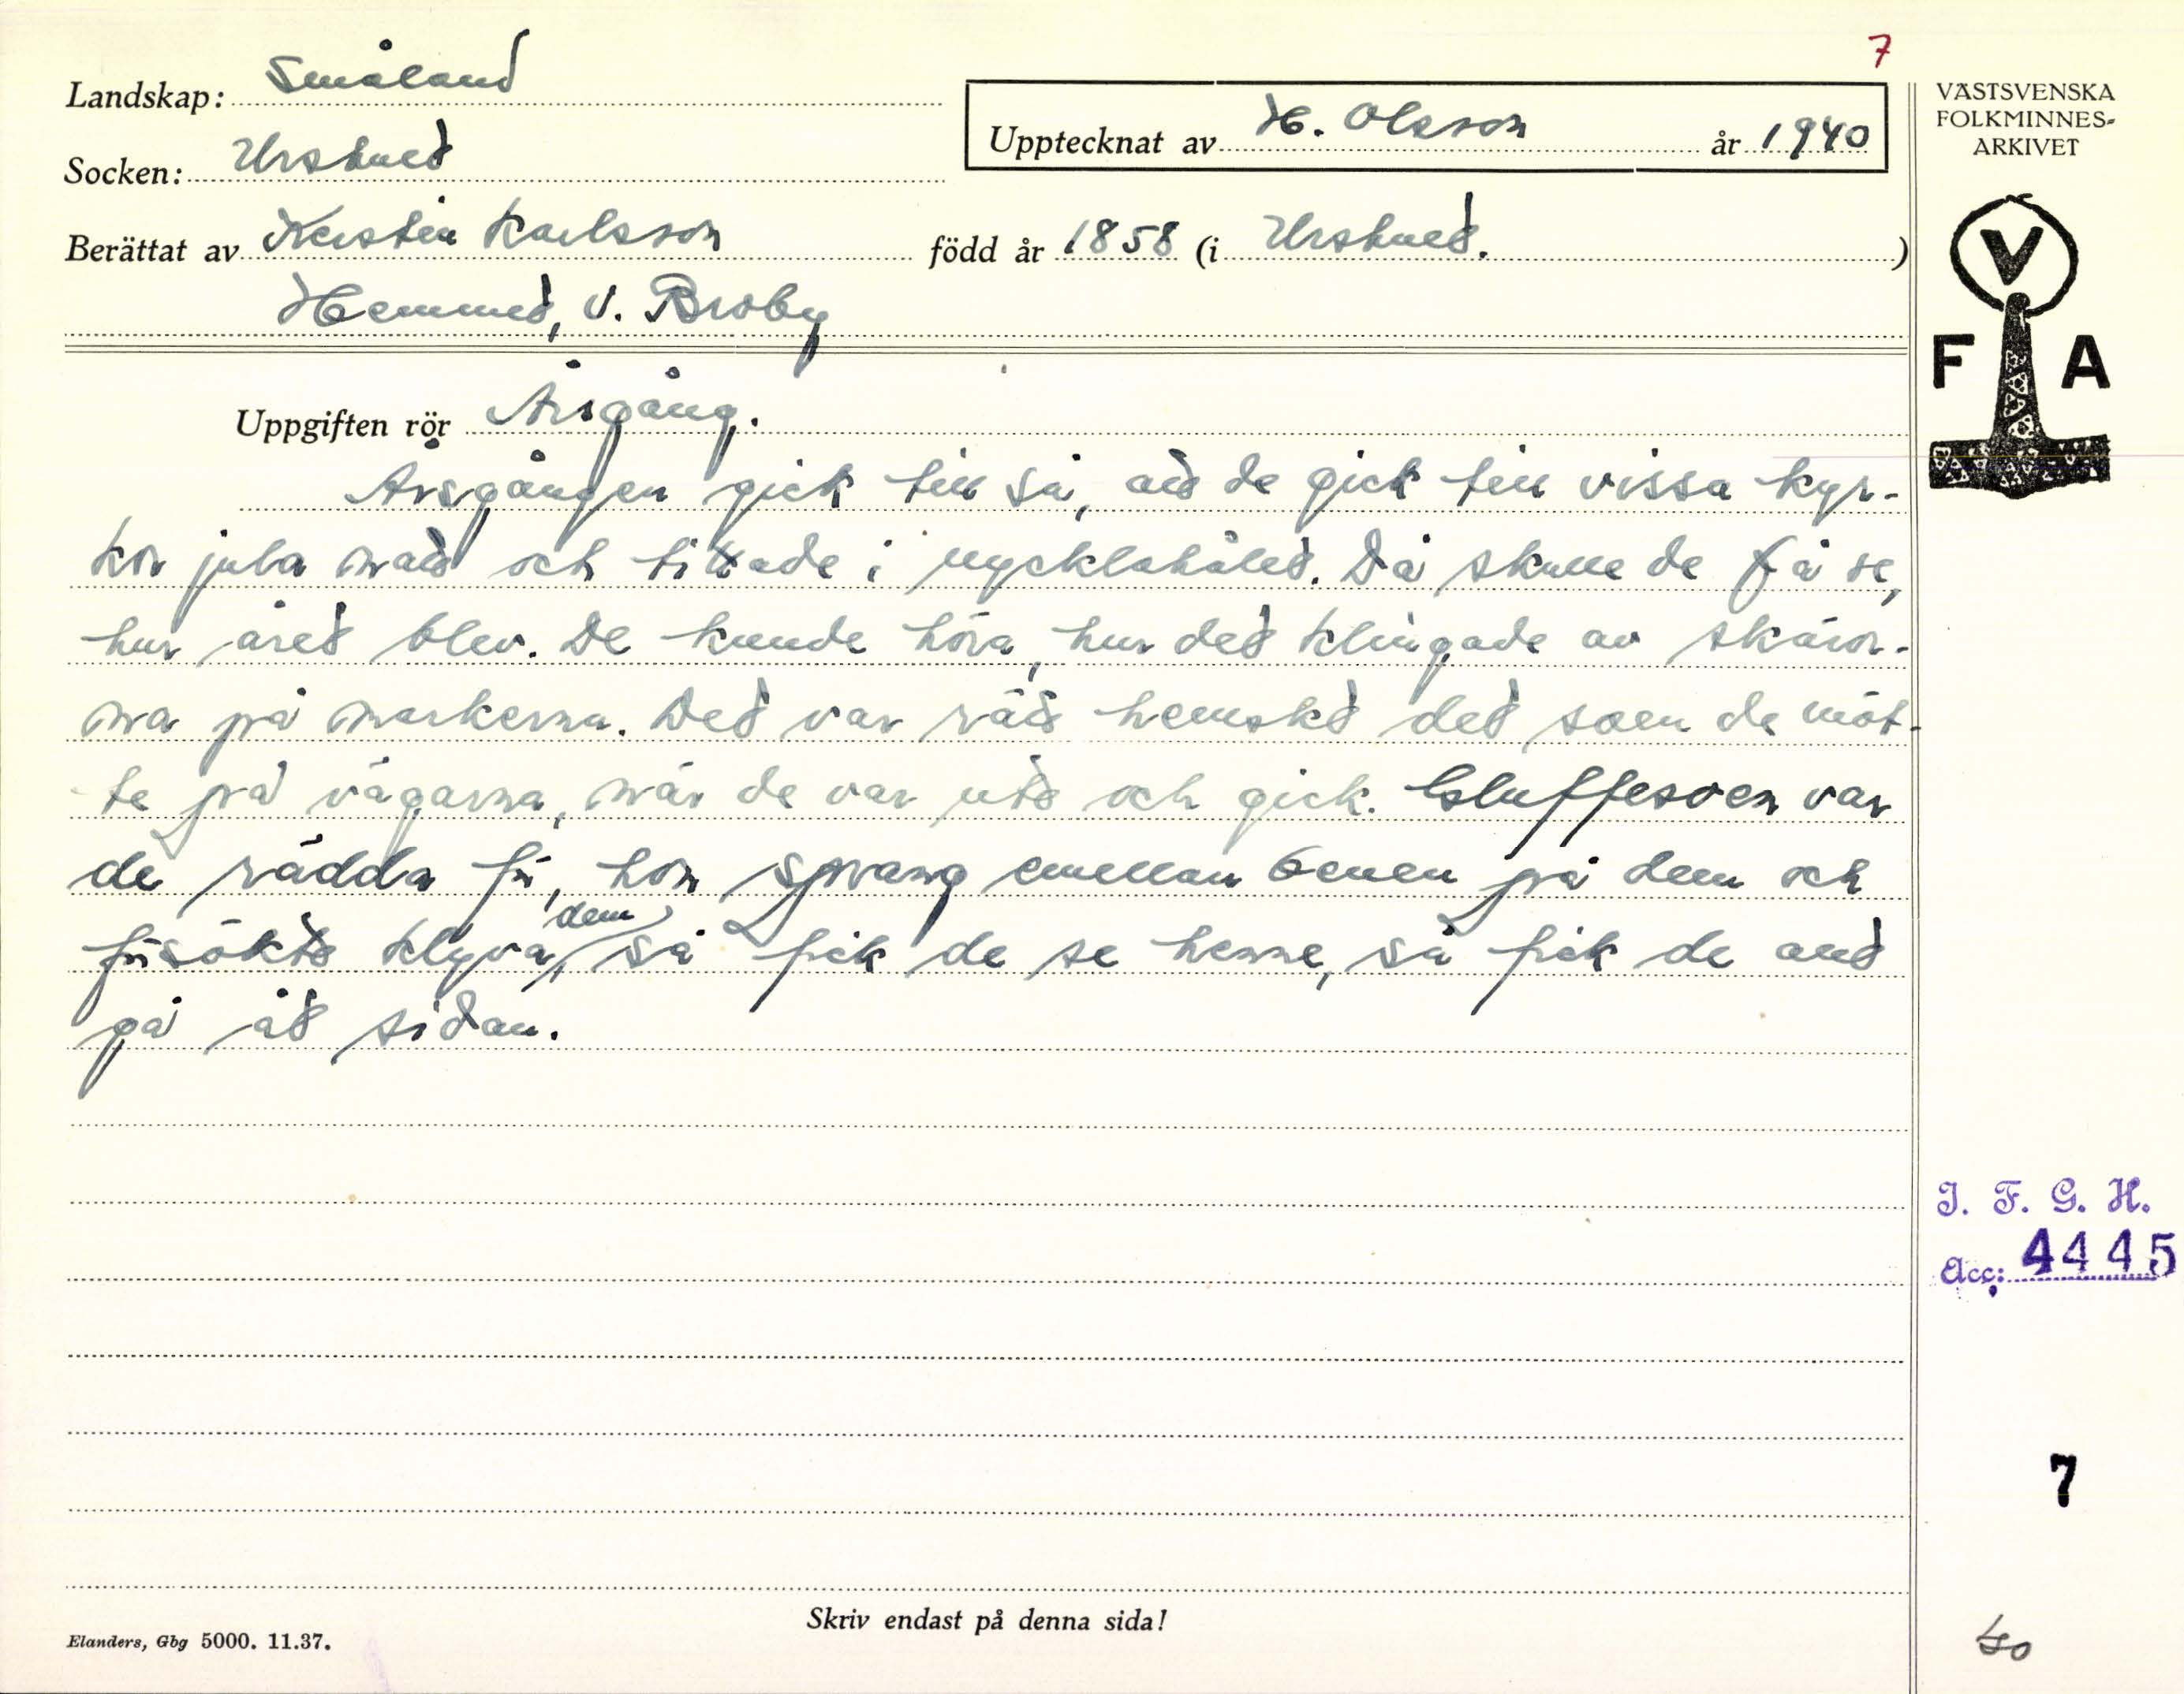 7
Landskap: Småland
Upptecknat av H. Olsson år 1940
Socken: Urshult
Berättat av Kerstin Karlsson född år 1858 (i Urshult.)
Hemmet, V. Broby
VÄSTSVENSKA
FOLKMINNES-
ARKIVET
V
F A
Uppgiften rör Årsgång.
Årsgången gick till så, att de gick till vissa kyr-
kor jula natt och tittade i nycklahålet. Då skulle de få se,
hur året blev. De kunde höra, hur det klingade av skäror-
na på markerna. Det var rätt hemskt det som de möt-
te på vägarna, när de var ute och gick. Gluffesoen var
de rädda för, hon sprang emellan benen på dem och
försökte klyva dem, så fick de se henne, så fick de allt
gå åt sidan.
I. F. G. H.
Acc: 4445
7
Skriv endast på denna sida!
Elanders, Gbg 5000. 11.37.